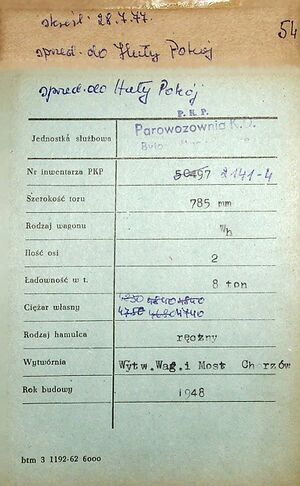 skreśl. 28.7.77.
54
sprzed. do Huty Pokój
sprzed. do Huty Pokój
P. K. P.
Jednostka służbowa Parowozownia K.D.
Nr inwentarza PKP 50497 2141-4
Szerokość toru 785 mm
Rodzaj wagonu Wh
Ilość osi 2
Ładowność w t. 8 ton
Ciężar własny 4840 4840
4750 4680 4740
Rodzaj hamulca ręczny
Wytwórnia Wytw.Wag.i Most Chorzów
Rok budowy 1948
btm 3 1192-62 6000